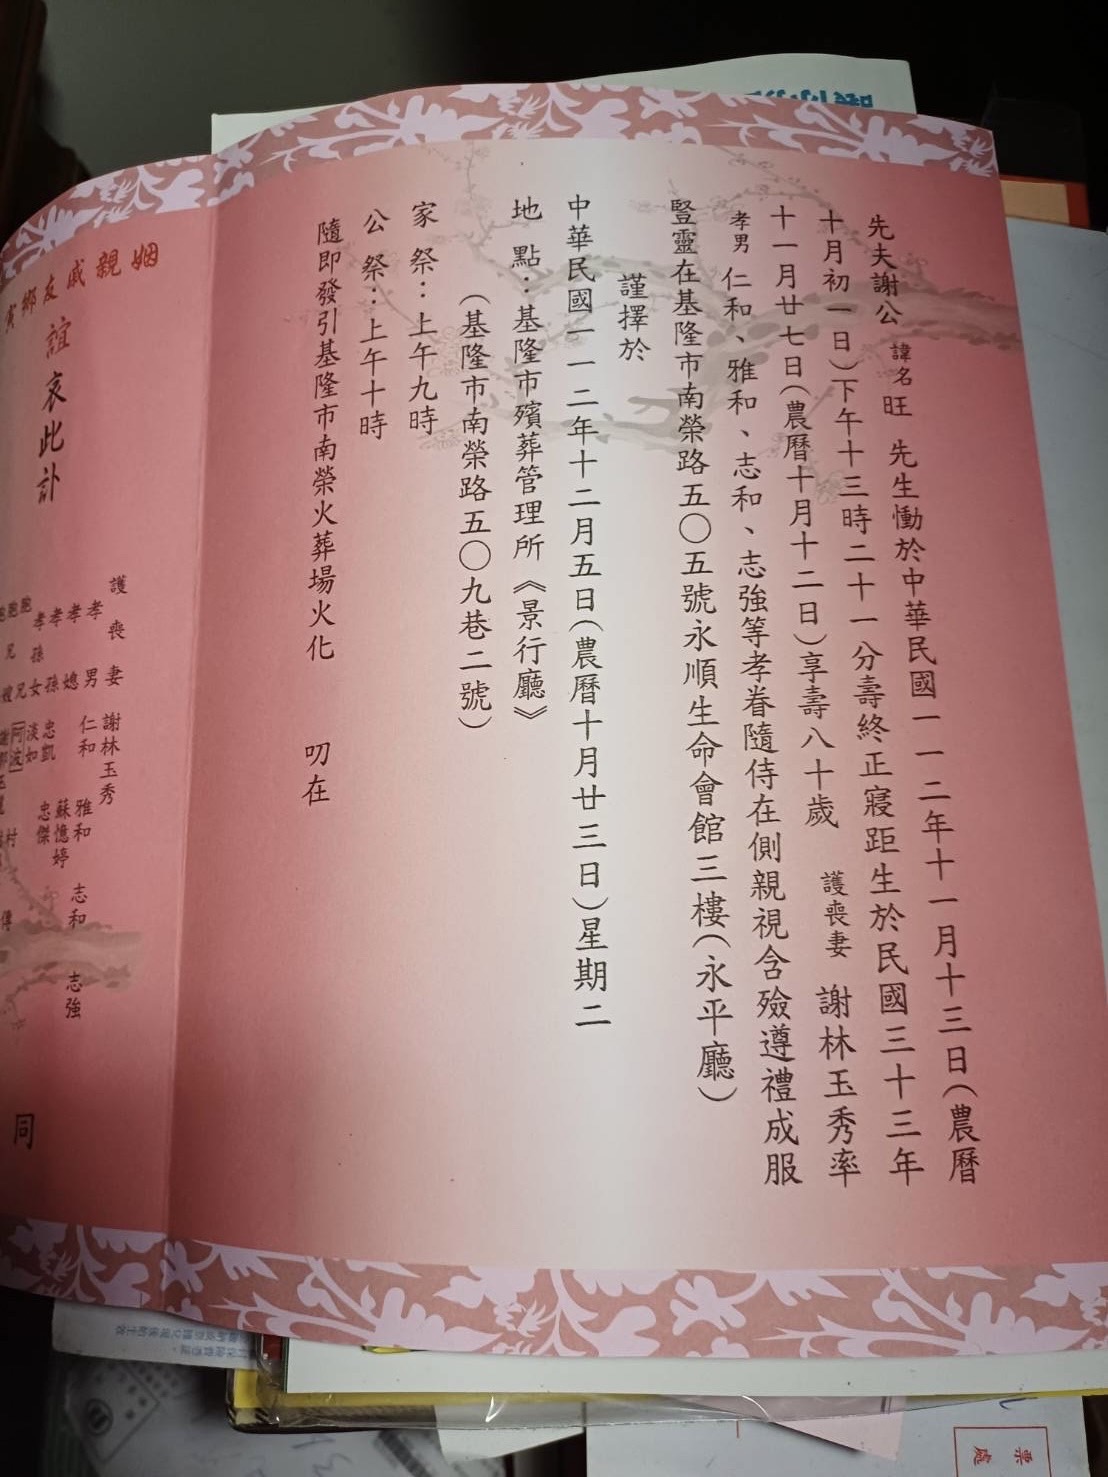 先夫謝公 諱名 旺 先生慟於中華民國一一二年十一月十三日(農曆
十月初一日)下午十三時二十一分壽終正寢距生於民國三十三年
十一月廿七日(農曆十月十二日)享壽八十歲 護喪妻 謝林玉秀率
孝男 仁和、雅和、志和、志強等孝眷隨侍在側親視含殮遵禮成服
豎靈在基隆市南榮路五〇五號永順生命會館三樓(永平廳)
謹擇於
中華民國一一二年十二月五日(農曆十月廿三日)星期二
地 點：基隆市殯葬管理所《景行廳》
(基隆市南榮路五〇九巷二號)
家 祭：上午九時
公 祭：上午十時
隨即發引基隆市南榮火葬場火化 叨在
姻親戚友鄉寅
誼哀此訃
護喪妻 謝林玉秀
孝男 仁和 雅和 志和 志強
孝媳 蘇憶婷
孝孫 忠凱 忠傑
孝孫女 淡如
胞兄 阿波
同
票處